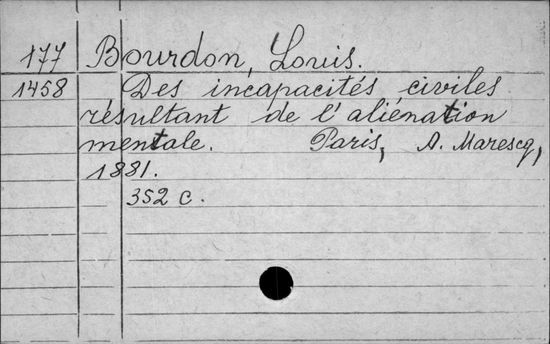 177 Bourdon, Louis.
1458 Des incapacités civiles
résultant de l'aliénation
mentale. Paris, A. Marescq,
1881.
352 c.